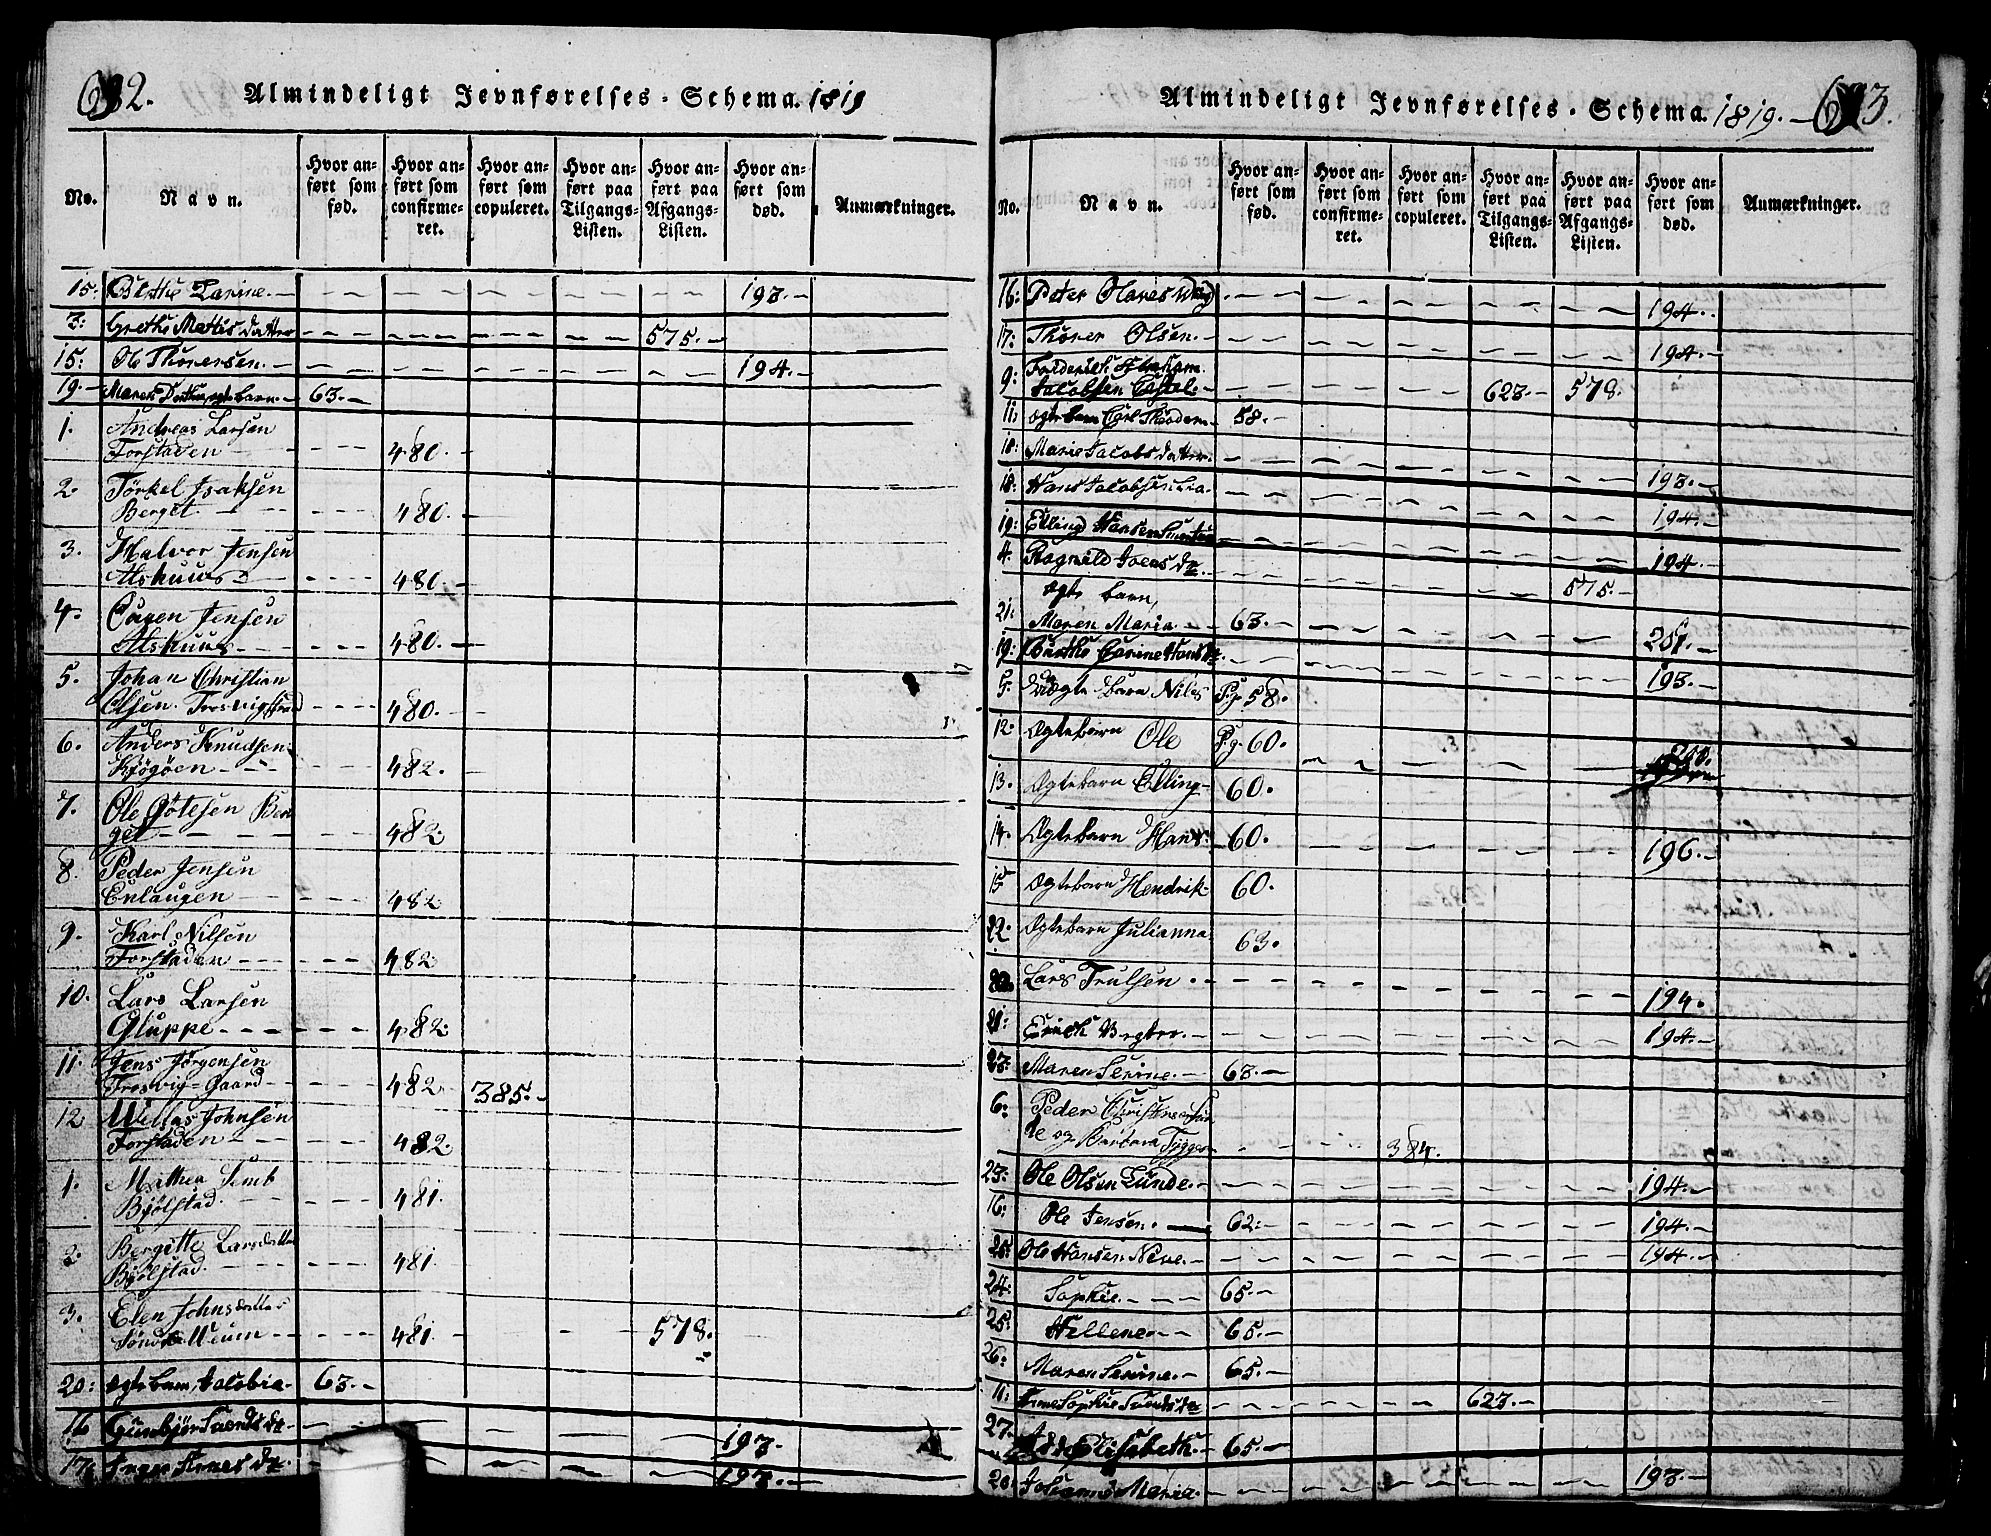 692.
Almindeligt Jevnførelses-Schema. 1819
No.
Navn.
Hvor anført som fød.
Hvor anført som confirmeret.
Hvor anført som copuleret.
Hvor anført paa Tilgangs-Listen.
Hvor anført paa Afgangs-Listen.
Hvor anført som død.
Anmærkninger.
15. Birthe Karine. - 193. -
3: Grethe Mattisdatter - 575. -
15: Ole Thoresen. - 194. -
19. - Maren Dorthea, ægte barn. - 63. -
1. Andreas Larsen
Forstaden - 480. -
2. Törkel Isaksen
Berget - 480. -
3. Halvor Jensen
Alshuus - 480. -
4. Jensen
Alshuus - 480. -
5. Johan Christian
Olsen. - 480. -
6. Anders Knudsen
Kjøgøen - 482. -
7. Ole Ber
get - 482.
8. Peder Jensen
Enhaugen - 482
9. Karl Nilsen
Forstaden - 482
10. Lars Larsen
Gluppe - 482.
11. Jens Jörgensen
Tresvig-Gaard - 482 385. -
12 Johnsen
Forstaden - 482.
1. Mathea
Bjölstad. - 481.
2. Bergitte Larsdatter
Bjölstad. - 481.
3. Elen Johnsdatter
- 481. 578.
20: ægte barn, Jacobia. 63. -
16 Gunbjør - 193. -
17. 193. -
693.
Almindeligt Jevnførelses-Schema. 1819. -
No.
Navn.
Hvor anført som fød.
Hvor anført som confirmeret.
Hvor anført som copuleret.
Hvor anført paa Tilgangs-Listen.
Hvor anført paa Afgangs-Listen.
Hvor anført som død.
Anmærkninger.
16: Peter - 194. -
17: Thorer Olsen. - 194. -
9: Friderich
Jacobsen - 623. - 578.
11: ægte barn Carl Theodor - 58. -
18: Marie Jacobsdatter. - 193. -
18: Hans Jacobsen - 194. -
19: Elling Hansen - 194. -
4. Ragnild - 575. -
ægte barn,
21: Maren Maria - 63. - 201. -
19: Birthe Carine Hansdr. - 193. -
5. Uægte Barn Nils Pg 58.
12. Ægtebarn Ole Pg. 60. 200.
13. Ægtebarn Elling - 60.
14. Ægtebarn Hans. 60. 196. -
15 Ægtebarn Hendrik - 60.
22. Ægtebarn Julianna 63.
20. Lars Trulsen - 194.
21: Erich - 194. -
23: Maren Serine. - 63. -
6: Peder
og Barbara - 384.
23: Ole Olsen Lunde. - 194. -
16: Ole Jensen. - 62: 194. -
25: Ole Hansen - 194. -
24: Sophie. - 65. -
25: Hellene. - 65. -
26: Maren Serine. - 65. -
11: Anne Sophie - 623. -
27. Elisabeth. - 65. -
20: Johanne Maria. 193. -